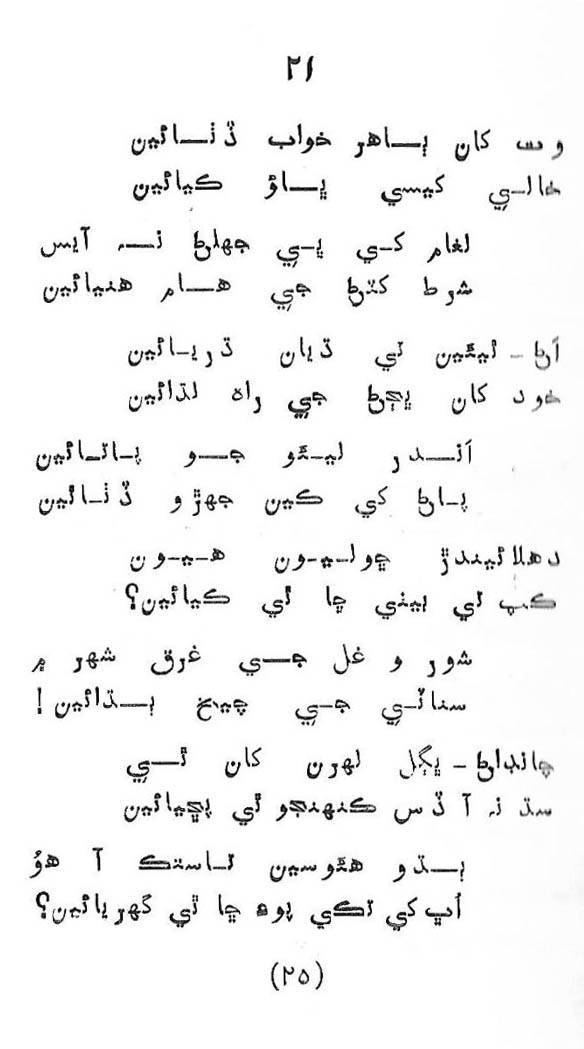 ۲۱
وس کان ٻاهر خواب ڏٺائين
خالي کيسي ڀاؤ ڪيائين
لغام کي پي جهلڻ نہ آيس
شرط کٽڻ جي هام هنيائين
اڻ - ٿيڻين تي ڌيان ڌريائين
خود کان ڀڄڻ جي راه لڌائين
اندر ليئو جو پاتائين
پاڻ کي ڪين جهڙو ڏٺائين
دهلائيندڙ ڇوليون هيون
ڪپ تي بيٺي ڇا ٿي ڪيائين؟
شور و غل جي غرق شهر ۾
سناٽي جي چيخ ٻڌائين !
چانڊاڻ - ڀڳل لهرن کان ٿي
سڌ نہ آ ڏس ڪنهنجو ٿي پڇيائين
ٻڌو هئوسين ناستڪ آ هوُ
اُڀ کي تڪي پوءِ ڇا ٿي گهريائين؟
(۲۵)